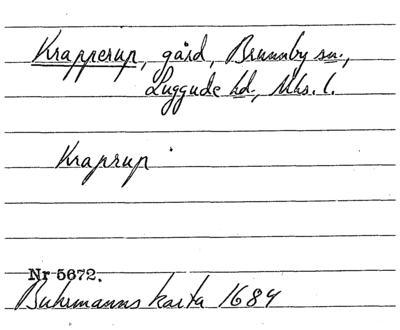 Krapperup, gård, Brunnby sn.,
Luggude hd., Mhs. l.
Kraprup
Nr 5672.
Buhrmanns karta 1684